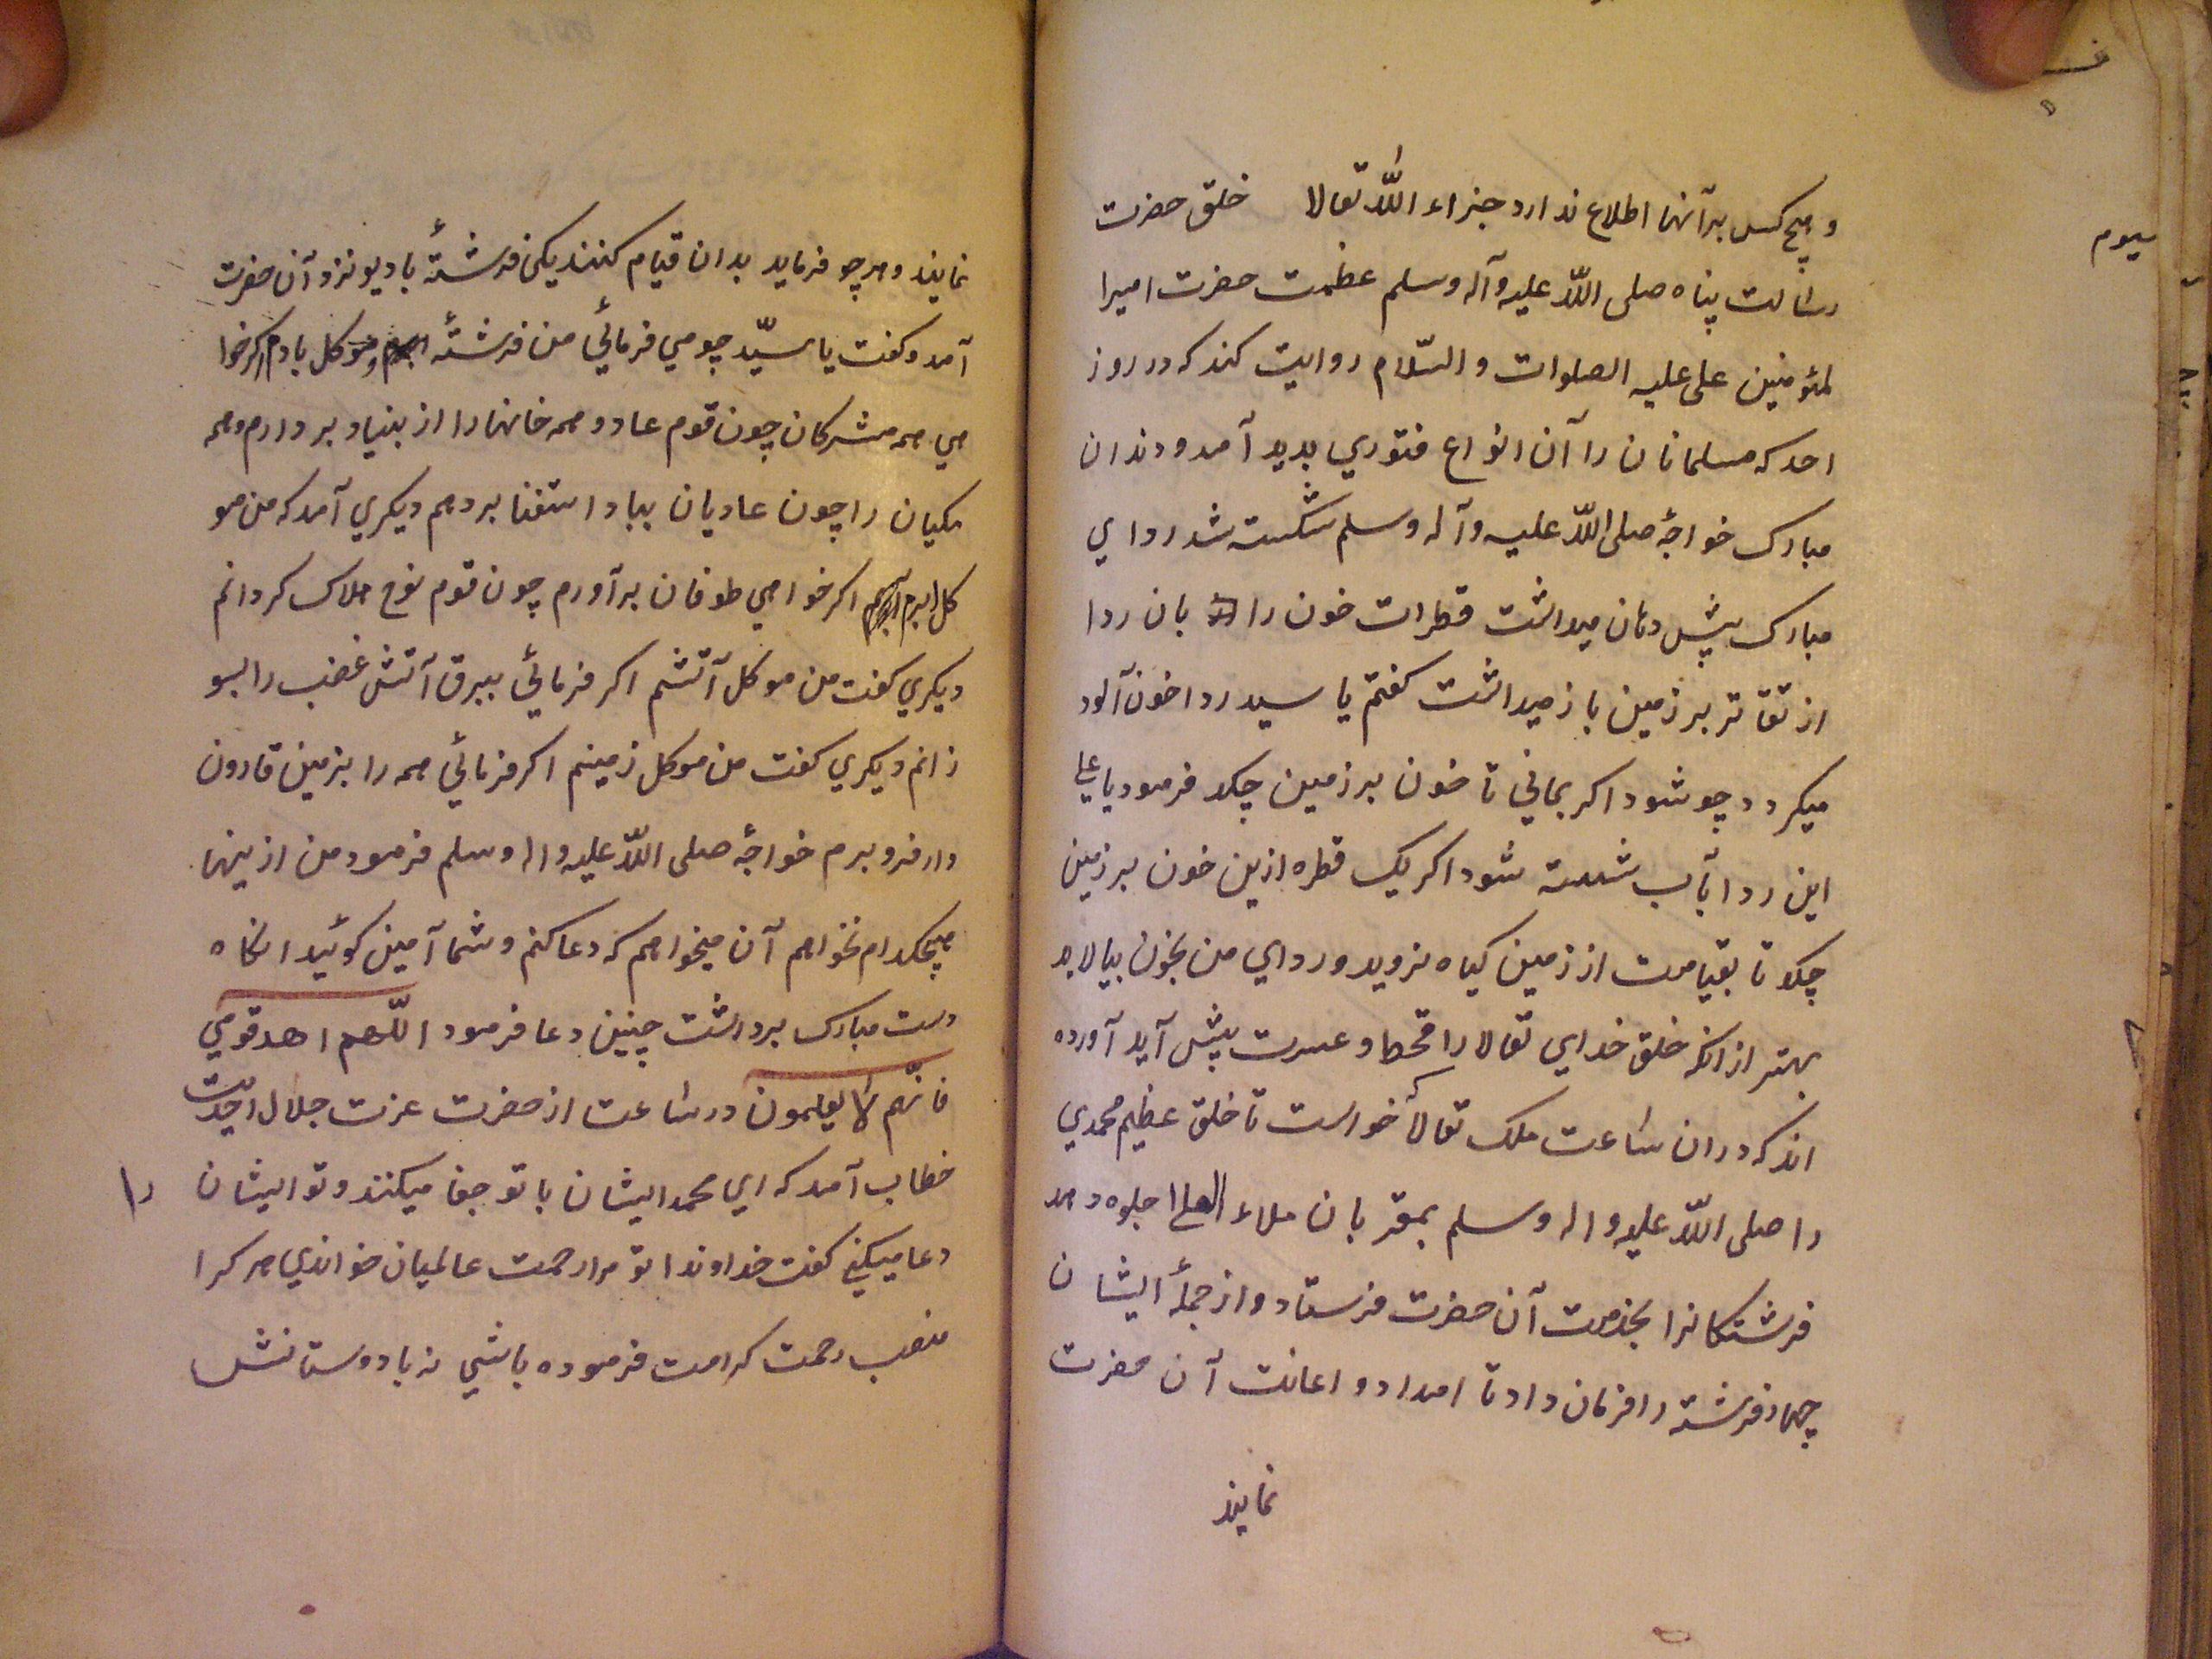 و هیچ کس بر آنها اطلاع ندارد جزاء اللّه تعالا خلق حضرت
رسالت پناه صلی اللّه علیه وآله وسلم عظمت حضرت امیرا
لمئومنین علی علیه الصلوات والسّلام روایت کند که در روز
احد که مسلمانان را آن انواع فتوري پدید آمد و دندان
مبارک خواجۀ صلی اللّه علیه وآله وسلم شکسته شد رداي
مبارک پیش دهان میداشت قطرات خون را بان ردا
از تقاتر بر زمین باز میداشت کفتم یا سید ردا خون آلود
میکردد چو شود اکر بمانی تا خون بر زمین چکد فرمود یا علی
این ردا بآب شسته شود اکر یک قطره ازین خون بر زمین
چکد تا بقیامت از زمین کیاه نروید و رداي من بخون بیالاید
بهتر از انکه خلق خداي تعالا را قحط و عسرت پیش آید آورده
اند که دران ساعت ملک تعالا خواست تا خلق عظیم محمدي
را صلی اللّه علیه واله وسلم بمقربان ملاء العلا جلوه دهد
فرشتکانرا بخدمت آن حضرت فرستاد و از جملۀ ایشان
چهار فرشته را فرمان داد تا امداد و اعانت آن حضرت
نمایند
سیوم
نمایند و هر چو فرماید بدان قیام کنند یکی فرشتۀ باد یو نزد آن حضرت
آمد و کفت یا سیّد چو مي فرمائي من فرشتۀ موکل بادم اکر خوا
هي همه مشرکان چون قوم عاد و همه خانها را از بنیاد بر دارم و همه
مکیان را چون عادیان بباد استغنا بر دهم دیکري آمد که من مو
کل ابرم اکر خواهي طوفان بر آورم چون قوم نوح هلاک کردانم
دیکري کفت من موکل آتشم اکر فرمائي ببرق آتش غضب را بسو
زانم دیکري کفت من موکل زمینم اکر فرمائي همه را بزمین قارون
وار فرو برم خواجۀ صلی اللّه علیه واله وسلم فرمود من ازینها
هیچکدام نخواهم آن میخواهم که دعا کنم و شما آمین کوئید انکاه
دست مبارک برداشت چنین دعا فرمود اللّهم اهد قومي
فانّهم لا یعلمون در ساعت از حضرت عزت جلال احدیّت
خطاب آمد که اي محمد ایشان با تو جفا میکنند و تو ایشان را
دعا میکني کفت خداوندا تو مرا رحمت عالمیان خواندي هر کرا
منصب رحمت کرامت فرموده باشي نه با دوستانش